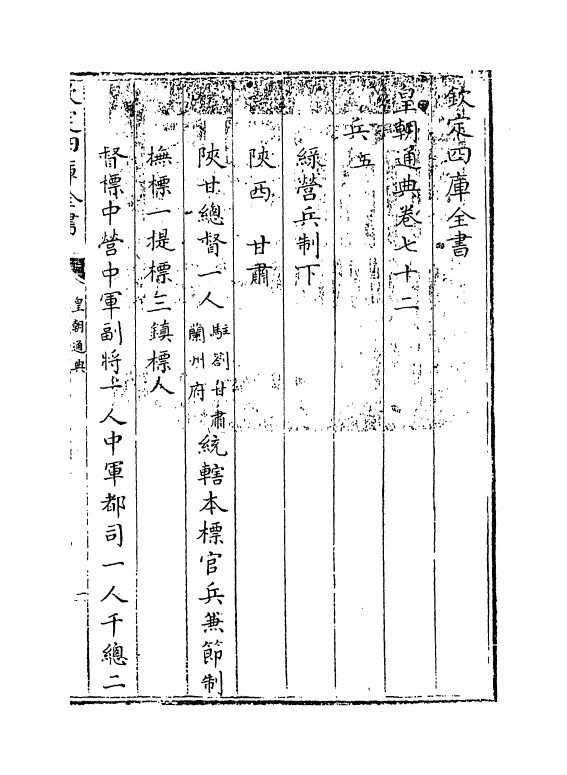 欽定四庫全書
皇朝通典卷七十二
兵五
綠營兵制下
陝西 甘肅
陝甘總督一人駐劄甘肅蘭州府統轄本標官兵兼節制
撫標一提標三鎮標八
督標中營中軍副將一人中軍都司一人千總二
欽定四庫全書 皇朝通典 一